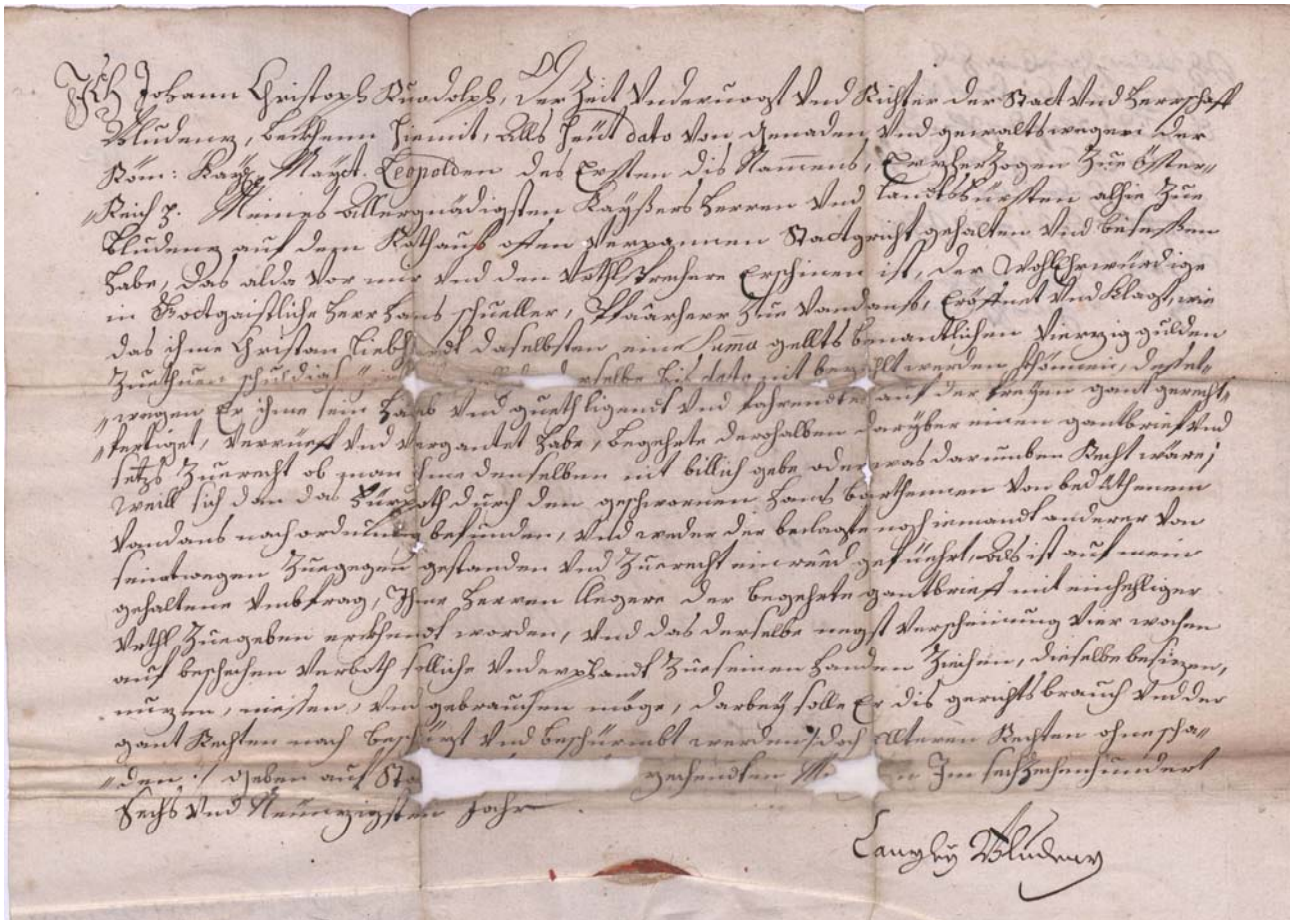 Ich Johann Christoph Ruodolph, der Zeit Vndervogt Vnd Richter der Statt Vnd Herrschafft
Bludenz, bekhenn hiemit, Alls heüt dato von genaden Vnd gewaltswegen der
Röm: Kay: Mayst. Leopolden des Ersten dis Nammens, Erzherzogen zue Öster„
„Reich p. Meines allergnädigsten Kayßers Herren Vnd Landtsfürsten alhie Zue
Bludenz auf dem Rathauß offen Verpannen Stattgricht gehalten Vnd beseßen
habe, das alda Vor mir Vnd den Vrthlsprechere Erschinen ist, der WohlEhrwürdige
in Gottgaistliche Herr Hans schueller, Pfaarherr Zue Vandanß, Eröffnet Vnd Klagt, wie
das ihme Christan Liebhardt daselbsten eine Suma gellts benantlichen Vierzig gulden
Zuethuen schuldig derselbe bis dato nit bezahlt werden khönnen, desset„
„wegen Er ihme sein Haab Vnd gueth ligendt Vnd fahrendtes auf der freyen gant gerecht„
„fertiget, Verrüefft Vnd Vergantet habe, begehrte derohalben darüber einen gantbrieff Vnd
setzs Zuerecht ob man ihme denselben nit billich gebe oder was darumben Recht wäre;
Weill sich dan das Fürpoth durch den geschwornen Hans Barthennen Von bed Athenem
Vandans nach ordnung befunden, Vnd weder der beclagte noch iemandt anderer Von
seinetwegen Zuegegen gestanden Vnd Zuerecht einred gefüehrt, als ist auf mein
gehaltene Vmbfrag, Ihme Herren Clegere der begehrte gantbrieff mit einhelliger
Vrthl Zuegeben erkhendt worden, Vnd das derselbe negst Verscheinung Vier wochen
auf beschechen Verboth solliche Vnderpfandt Zue seinen Handen Ziechen, dieselbe besizen,
nuzen, niessen, Vnd gebrauchen möge, darbey solle Er dis gerichtsbrauch Vnd der
gant Rechten nach beschüzt Vnd beschürmbt werden/: doch elteren Rechten ohne scha„
„den :/ Geben auf zechendten Im sechzechenhundert
Sechs Vnd Neünzigsten Jahr
Canzley Bludenz